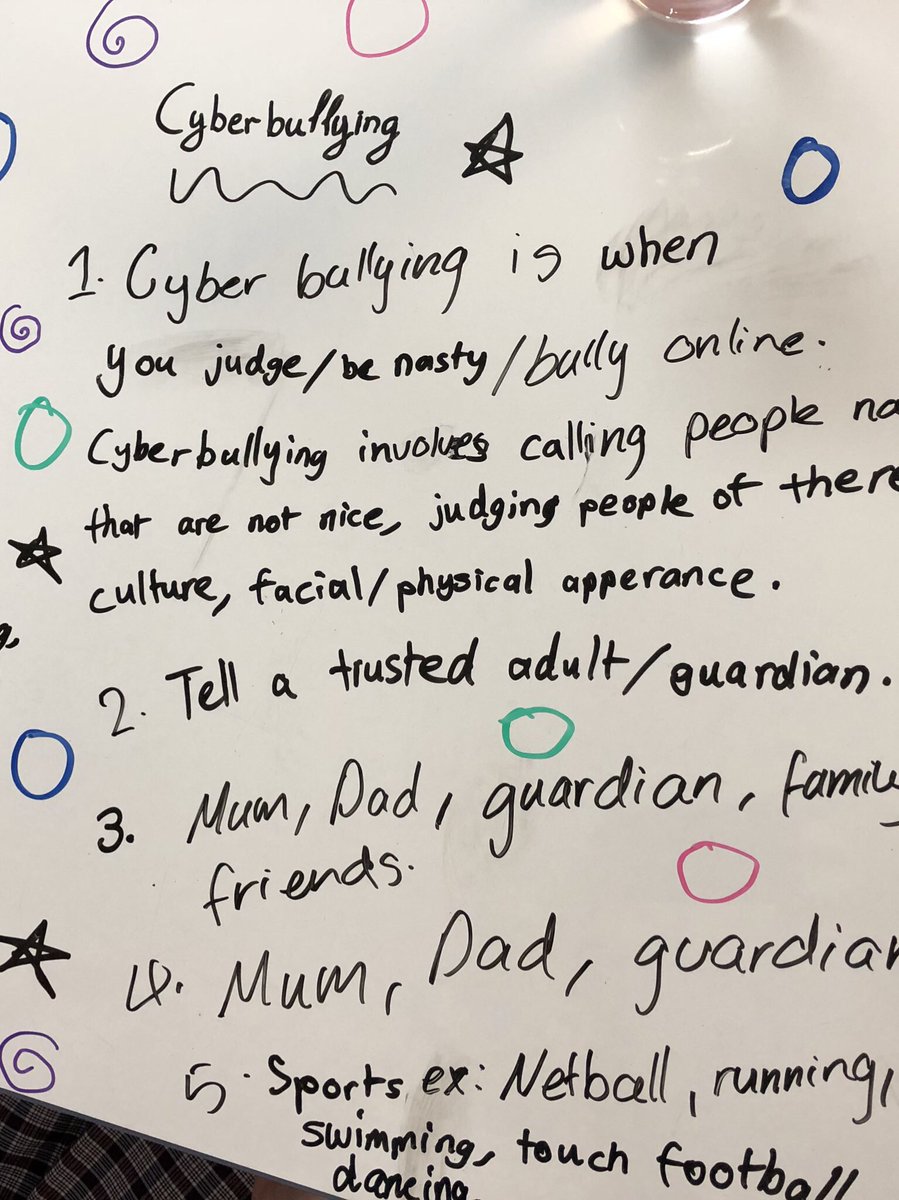 Cyberbullying
1. Cyber bullying is when
you judge/be nasty/bully online.
Cyberbullying involves calling people na
that are not nice, judging people of there
culture, facial/physical apperance.
2. Tell a trusted adult/guardian.
3. Mum, Dad, guardian, family
friends.
4. Mum, Dad, guardian
5. Sports ex: Netball, running,
swimming, touch football
dancing